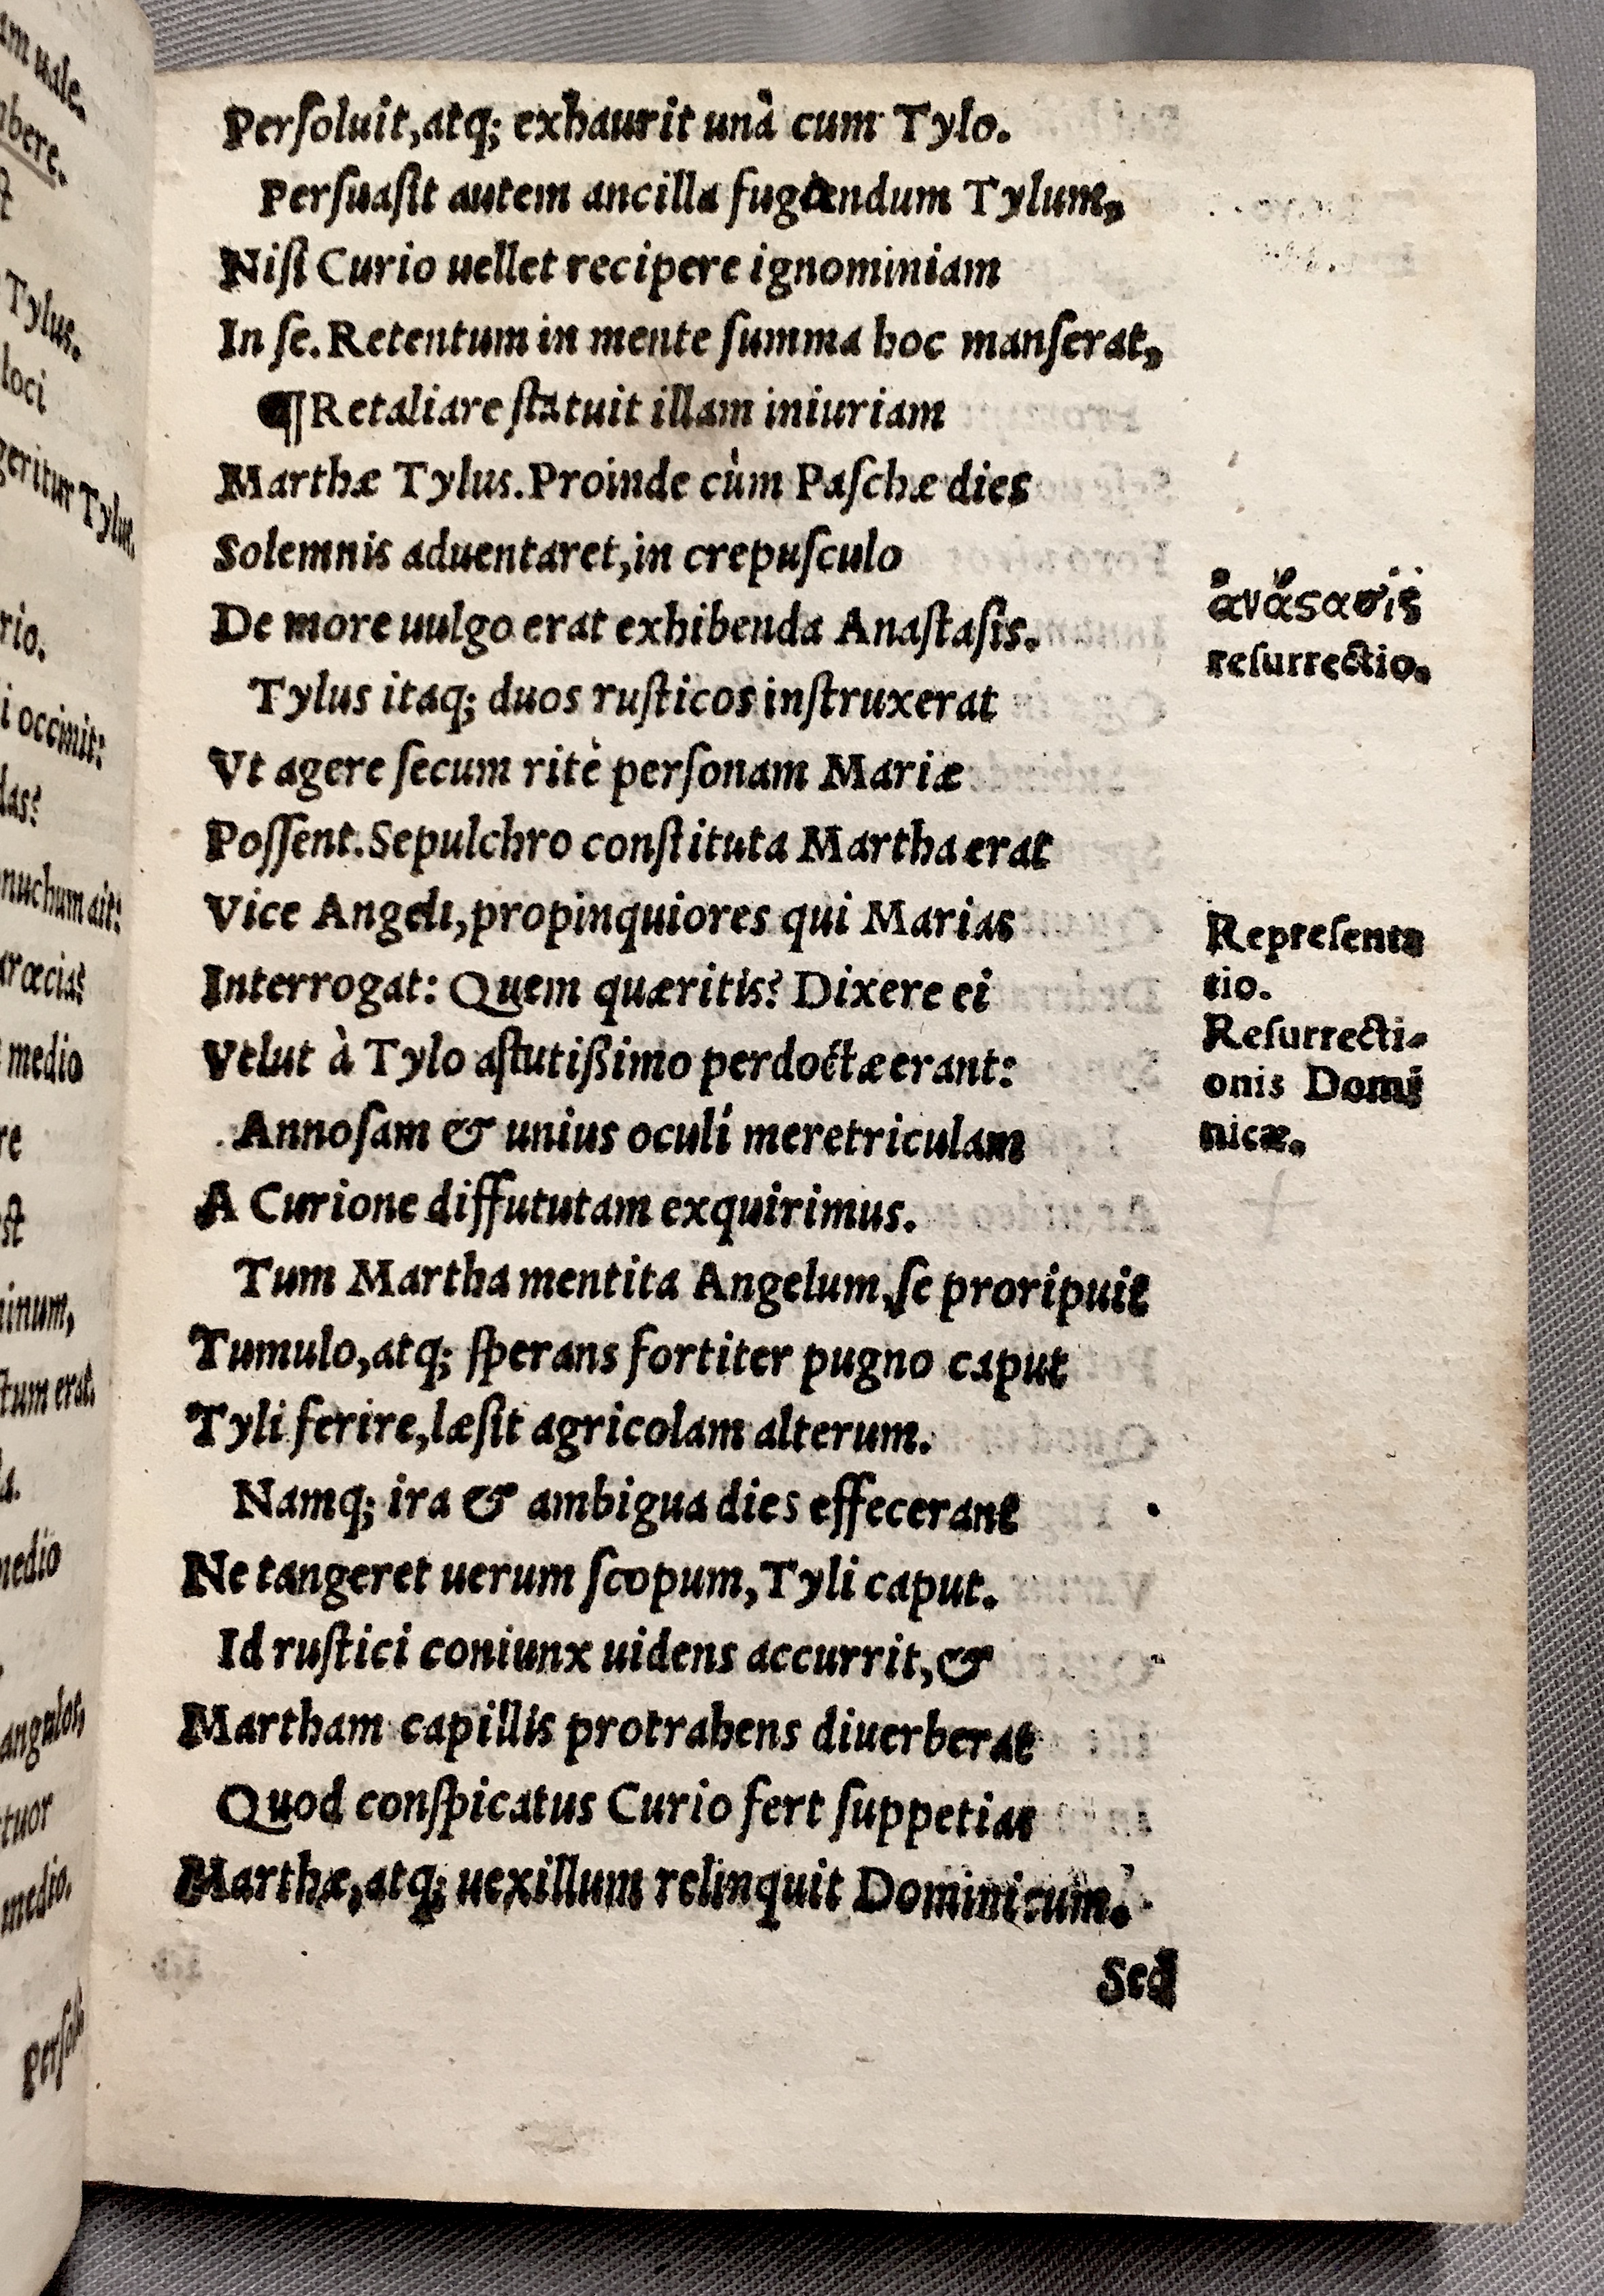 Perſoluit,atq; exhaurit unà cum Tylo.
Perſuaſit autem ancilla fugiendum Tylum,
Niſi Curio uellet recipere ignominiam
In ſe. Retentum in mente ſumma hoc manſerat,
¶ Retaliare ſtatuit illam iniuriam
Marthæ Tylus. Proinde cùm Paſchæ dies
Solemnis aduentaret,in crepuſculo
De more uulgo erat exhibenda Anaſtaſis.
ἀνάϛασις
reſurrectio.
Tylus itaq; duos ruſticos inſtruxerat
Vt agere ſecum ritè perſonam Mariæ
Poſſent. Sepulchro conſtituta Martha erat
Vice Angeli,propinquiores qui Marias
Repreſenta
tio.
Reſurrecti-
onis Domi
nicæ.
Interrogat: Quem quæritis? Dixere ei
Velut à Tylo aſtutißimo perdoctæ erant:
Annoſam & unius oculi meretriculam
A Curione diffututam exquirimus.
Tum Martha mentita Angelum,ſe proripuit
Tumulo,atq; ſperans fortiter pugno caput
Tyli ferire,læſit agricolam alterum.
Namq; ira & ambigua dies effecerant
Ne tangeret uerum ſcopum,Tyli caput.
Id ruſtici coniunx uidens accurrit,&
Martham capillis protrahens diuerberat
Quod conſpicatus Curio fert ſuppetias
Marthæ,atq; uexillum relinquit Dominicum.
Sed
am uale.
bere.
Tylus.
loci
geritur Tylus.
rio.
i occinit:
das?
nuchum ait:
aræcias
medio
re
ſt
inum,
ctum erat.
a.
medio
angulos,
tuor
medio.
Perſol